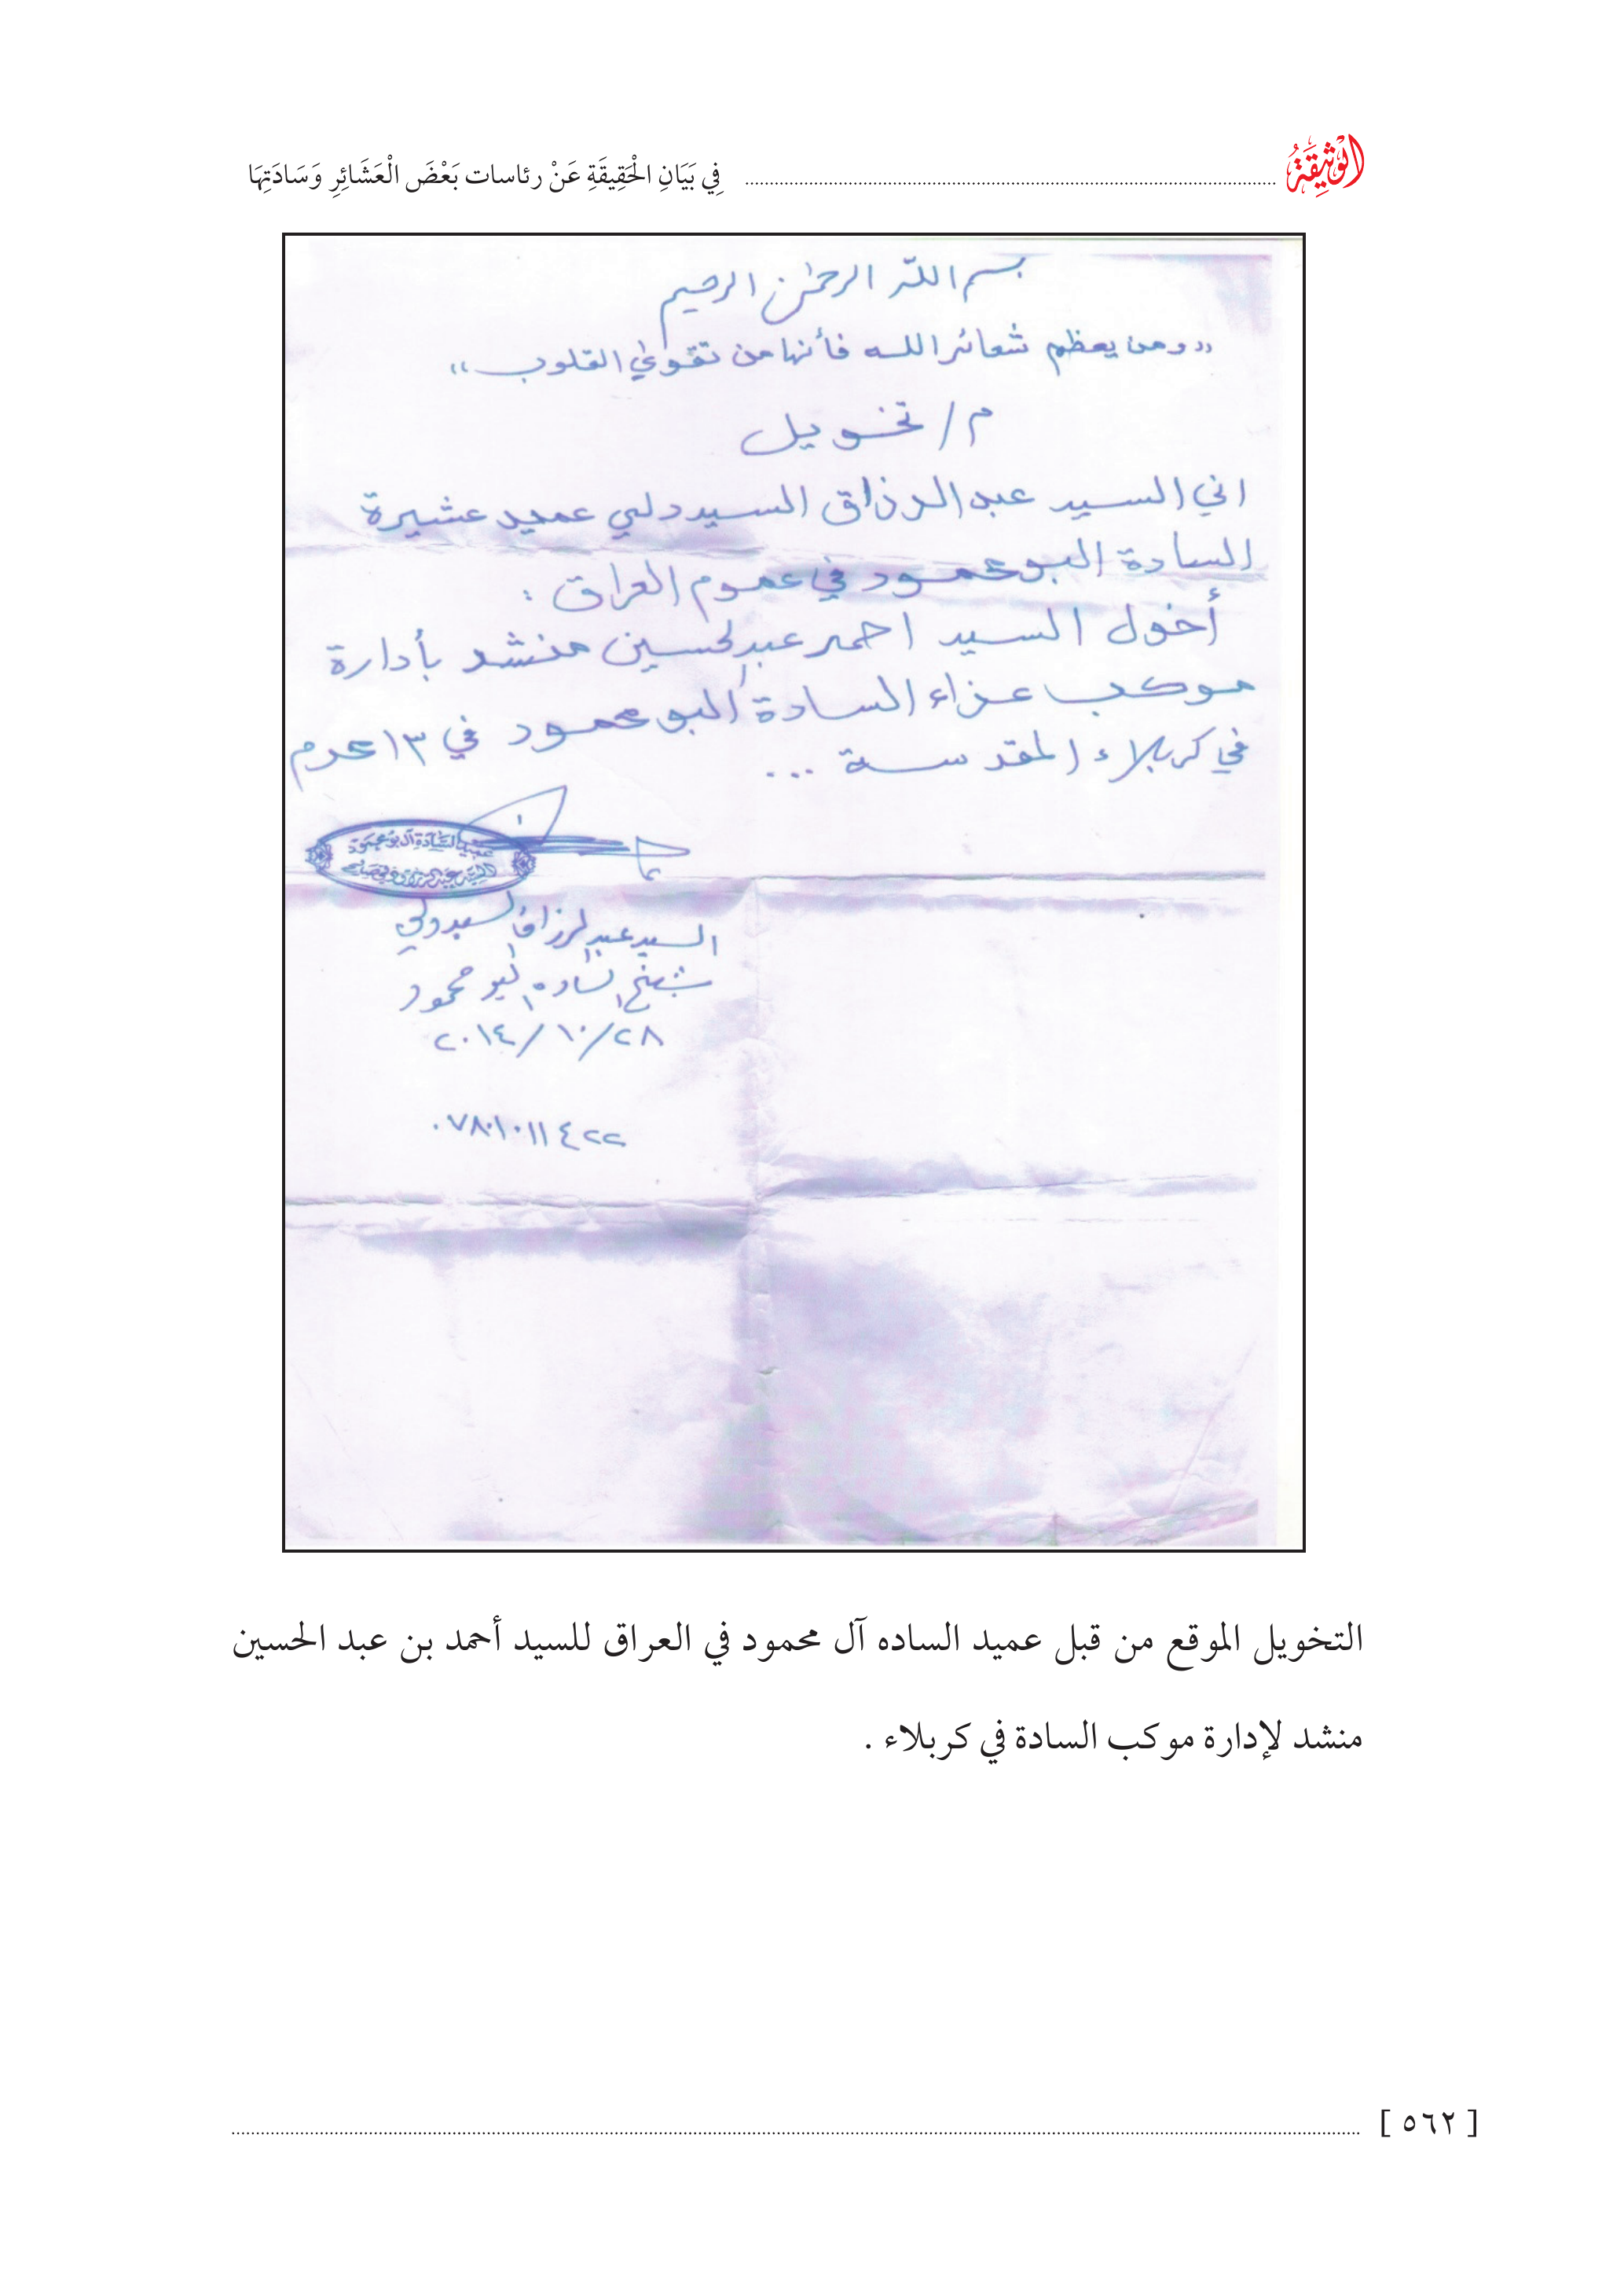 الوَثِيقَةُ
فِي بَيَانِ الْحَقِيقَةِ عَنْ رئاسات بَعْضَ الْعَشَائِرِ وَسَادَتِهَا
بسم الله الرحمن الرحيم
«ومن يعظم شعائر الله فأنها من تقوى القلوب»
م / تخويل
اني السيد عبد الرزاق السيد ولي عميد عشيرة
السادة البو محمود في عموم العراق :
أخول السيد احمد عبد الحسين منشد بأدارة
موكب عزاء السادة البو محمود في ١٣ محرم
في كربلاء المقدسة ...
عميد السادة آل بو محمود
السيد عبد الرزاق ولي
السيد عبد الرزاق السيد ولي
شيخ الساده البو محمود
٢٠١٤/١٠/٢٨
٠٧٨٠١٠١١٤٢٢
التخويل الموقع من قبل عميد الساده آل محمود في العراق للسيد أحمد بن عبد الحسين
منشد لإدارة موكب السادة في كربلاء .
[ ٥٦٢ ]